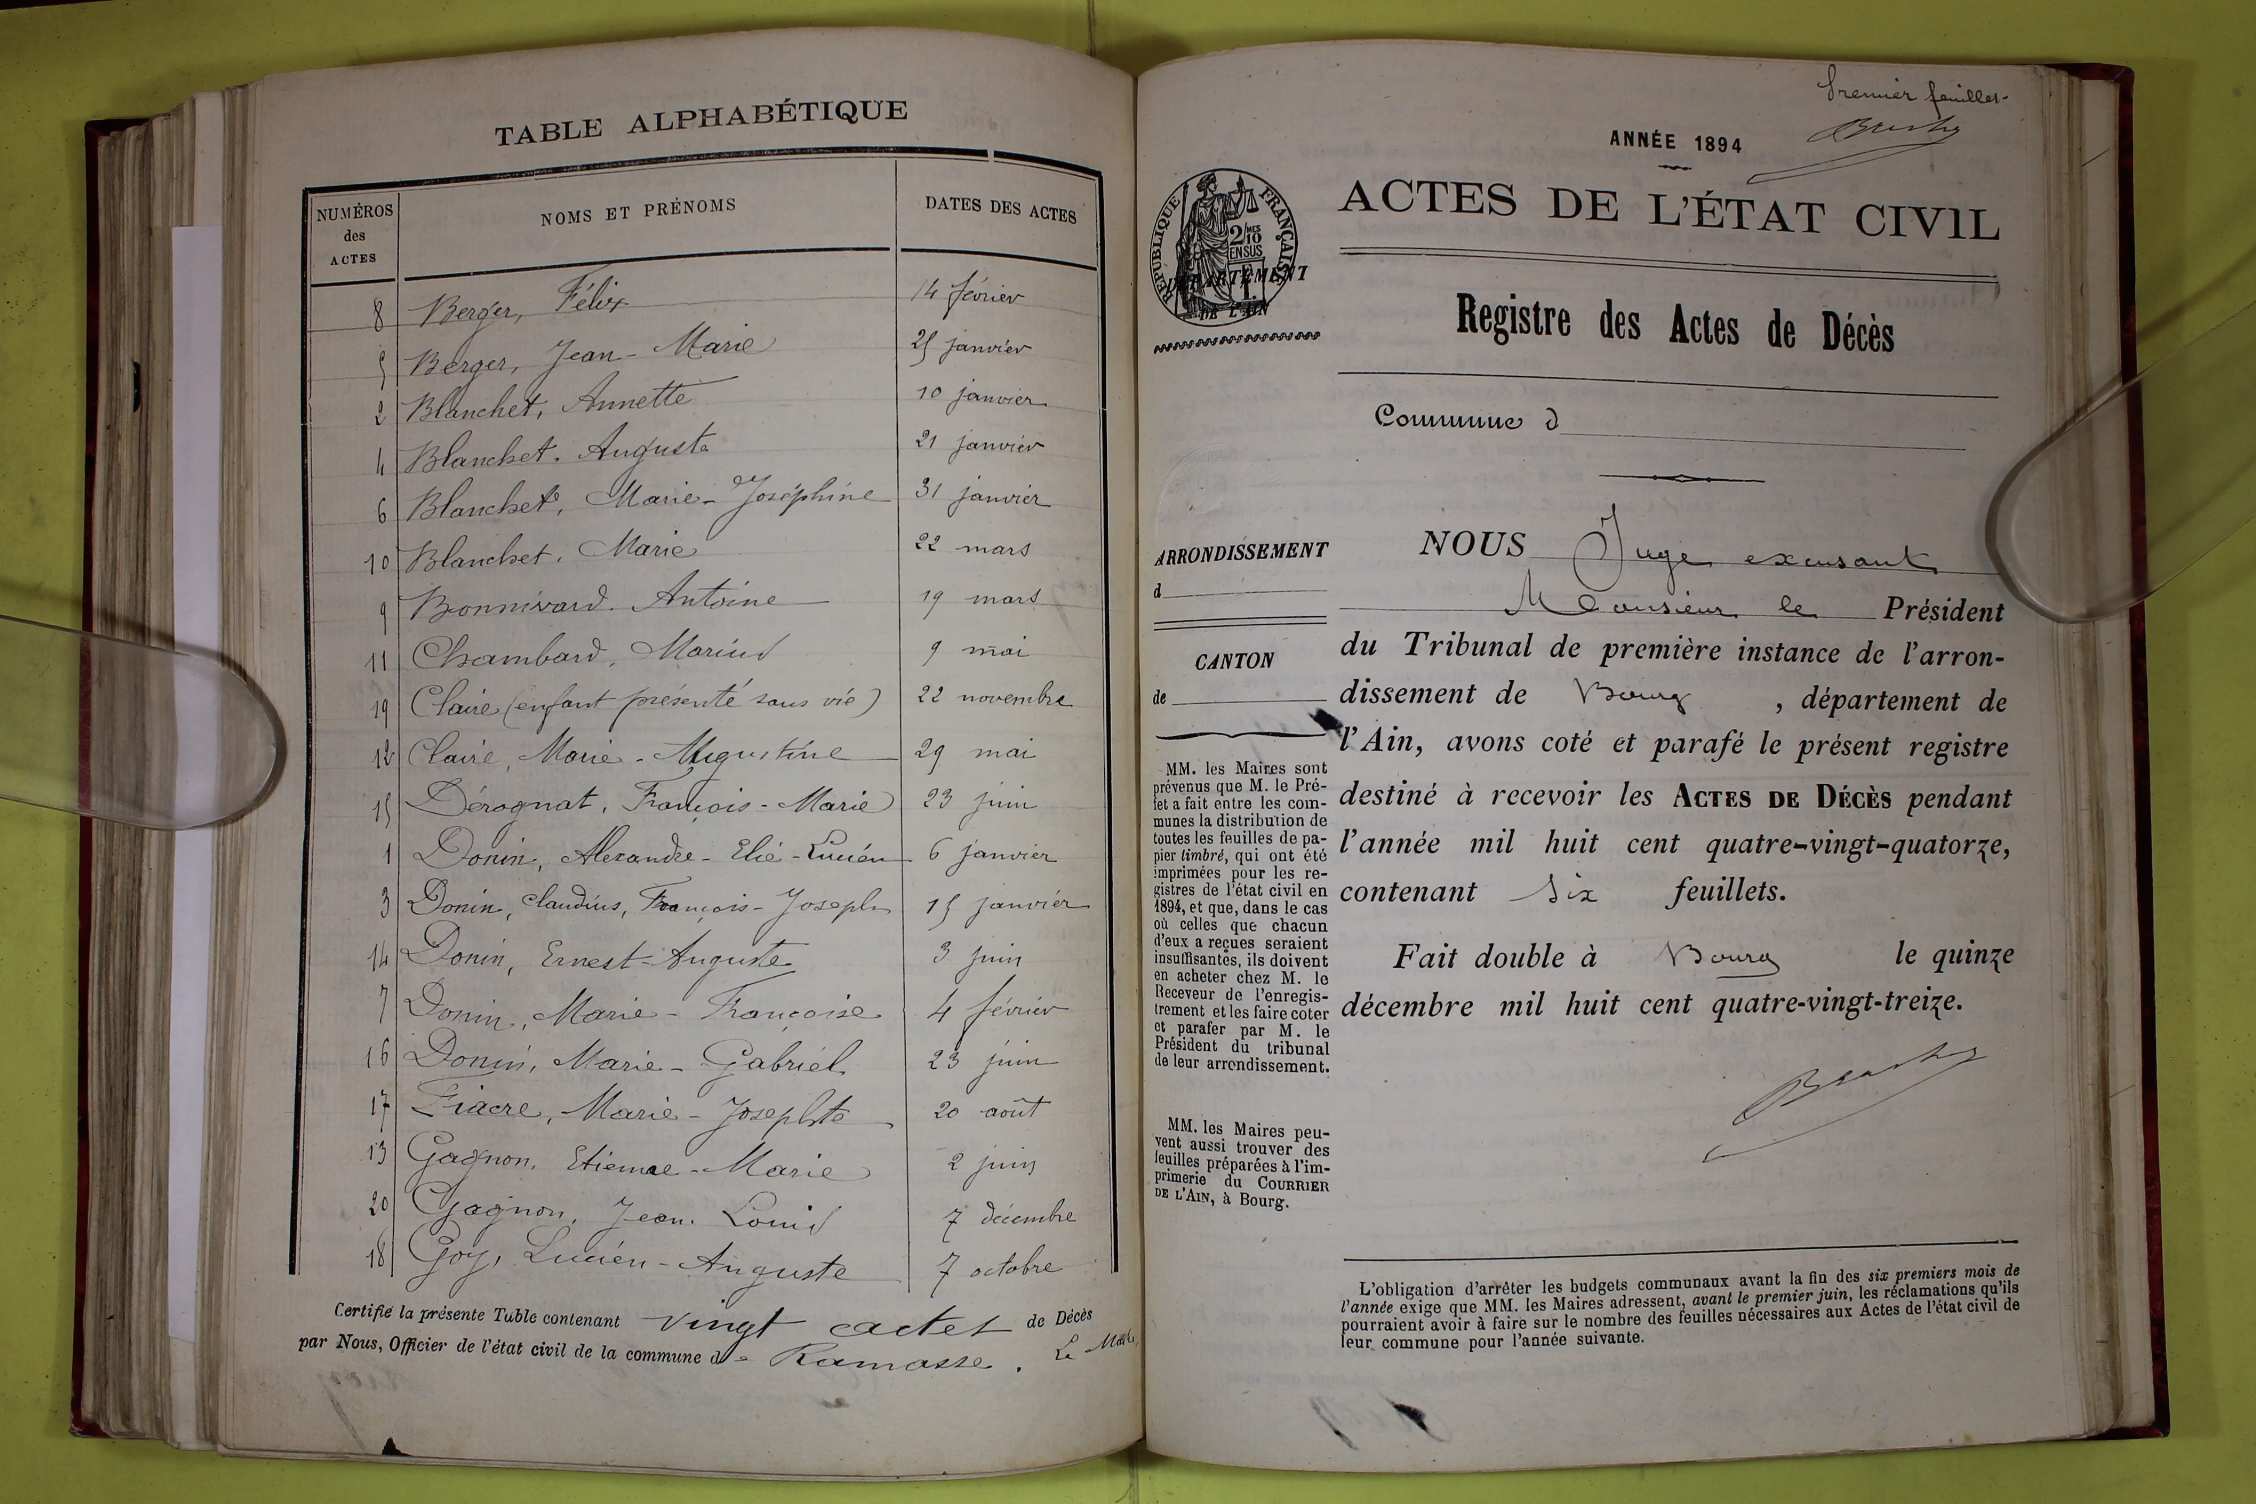 TABLE ALPHABÉTIQUE
NUMÉROS des ACTES NOMS ET PRÉNOMS DATES DES ACTES
8 Berger, Félix 14 février
5 Berger, Jean-Marie 25 janvier
2 Blanchet, Annette 10 janvier
4 Blanchet, Auguste 21 janvier
6 Blanchet, Marie-Joséphine 31 janvier
10 Blanchet, Marie 22 mars
9 Bonnivard, Antoine 19 mars
11 Chambard, Marius 9 mai
19 Claire (enfant présenté sans vie) 22 novembre
12 Claire, Marie-Augustine 29 mai
15 Dérognat, François-Marie 23 juin
1 Donin, Alexandre-Elie-Lucien 6 janvier
3 Donin, Claudius, François-Joseph 15 janvier
14 Donin, Ernest-Auguste 3 juin
7 Donin, Marie-Françoise 4 février
16 Donin, Marie-Gabriel 23 juin
17 Fiacre, Marie-Josephte 20 août
13 Gagnon, Etienne-Marie 2 juin
20 Gagnon, Jean-Louis 7 décembre
18 Goy, Lucien-Auguste 7 octobre
Certifié la présente Table contenant vingt actes de Décès
par Nous, Officier de l'état civil de la commune de Ramasse. Le Maire,
Premier feuillet
ANNÉE 1894
ACTES DE L'ÉTAT CIVIL
RÉPUBLIQUE FRANÇAISE
2/10 EN SUS
DÉPARTEMENT
DE L'AIN
Registre des Actes de Décès
Commune d
ARRONDISSEMENT
d
CANTON
de
MM. les Maires sont
prévenus que M. le Pré-
fet a fait entre les com-
munes la distribution de
toutes les feuilles de pa-
pier timbré, qui ont été
imprimées pour les re-
gistres de l'état civil en
1894, et que, dans le cas
où celles que chacun
d'eux a reçues seraient
insuffisantes, ils doivent
en acheter chez M. le
Receveur de l'enregis-
trement et les faire coter
et parafer par M. le
Président du tribunal
de leur arrondissement.
MM. les Maires peu-
vent aussi trouver des
feuilles préparées à l'im-
primerie du COURRIER
DE L'AIN, à Bourg.
NOUS Juge excusant
Monsieur le Président
du Tribunal de première instance de l'arron-
dissement de Bourg, département de
l'Ain, avons coté et parafé le présent registre
destiné à recevoir les ACTES DE DÉCÈS pendant
l'année mil huit cent quatre-vingt-quatorze,
contenant six feuillets.
Fait double à Bourg le quinze
décembre mil huit cent quatre-vingt-treize.
L'obligation d'arrêter les budgets communaux avant la fin des six premiers mois de
l'année exige que MM. les Maires adressent, avant le premier juin, les réclamations qu'ils
pourraient avoir à faire sur le nombre des feuilles nécessaires aux Actes de l'état civil de
leur commune pour l'année suivante.